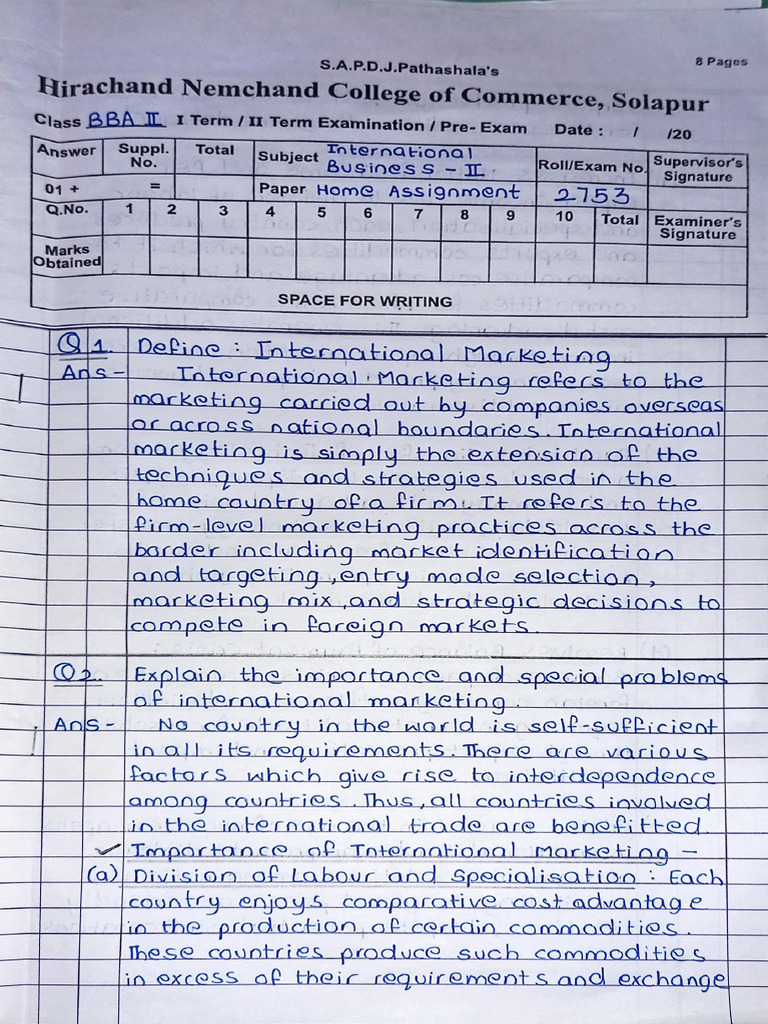 S.A.P.D.J.Pathashala's
8 Pages
Hirachand Nemchand College of Commerce, Solapur
Class BBA II I Term / II Term Examination / Pre- Exam Date : / /20
Answer Suppl. No. Total Subject International Business - II Roll/Exam No. Supervisor's Signature
01 + = Paper Home Assignment 2753
Q.No. 1 2 3 4 5 6 7 8 9 10 Total Examiner's Signature
Marks Obtained
SPACE FOR WRITING
Q 1. Define : International Marketing
Ans - International Marketing refers to the
marketing carried out by companies overseas
or across national boundaries. International
marketing is simply the extension of the
techniques and strategies used in the
home country of a firm. It refers to the
firm-level marketing practices across the
border including market identification
and targeting, entry mode selection,
marketing mix, and strategic decisions to
compete in foreign markets.
Q 2. Explain the importance and special problems
of international marketing.
Ans - No country in the world is self-sufficient
in all its requirements. There are various
factors which give rise to interdependence
among countries. Thus, all countries involved
in the international trade are benefitted.
Importance of International Marketing -
(a) Division of Labour and Specialisation : Each
country enjoys comparative cost advantage
in the production of certain commodities.
These countries produce such commodities
in excess of their requirements and exchange